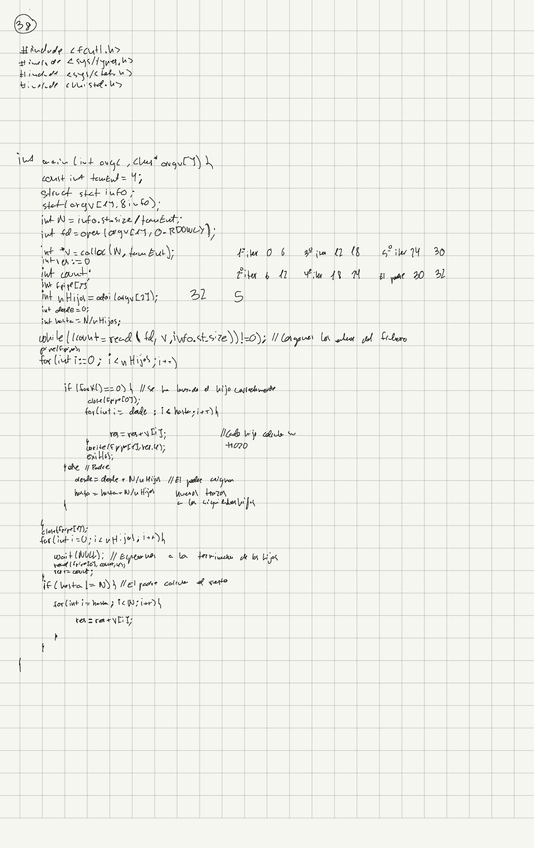 38
#include <fcntl.h>
#include <sys/types.h>
#include <sys/stat.h>
#include <unistd.h>
int main (int argc, char* argv[]) {
const int tamEnt = 4;
struct stat info;
stat(argv[1], &info);
int N = info.st_size/tamEnt;
int fd = open(argv[1], O_RDONLY);
int *v = calloc(N, tamEnt); 1º iter 0 6 3º iter 12 18 5º iter 24 30
int res = 0
int count; 2º iter 6 12 4º iter 18 24 El padre 30 32
int fpipe[2];
int nHijos = atoi(argv[2]); 32 5
int desde = 0;
int hasta = N/nHijos;
while ((count = read(fd, v, info.st_size)) != 0); // Cargamos los del fichero
pipe(fpipe);
for (int i=0; i<nHijos; i++)
if (fork() == 0) { // Se ha el hijo correctamente
close(fpipe[0]);
for (int i = desde; i < hasta; i++) {
res = res + v[i]; // Cada hijo calcula un
} trozo
write(fpipe[1], res, 4);
exit(0);
} else // Padre
desde = desde + N/nHijos // El padre asigna
hasta = hasta + N/nHijos nuevos trozos
} a los siguientes hijos
}
close(fpipe[1]);
for (int i=0; i<nHijos; i++) {
wait(NULL); // Esperamos a la terminación de los hijos
res += count;
}
if (hasta != N) { // El padre calcula el resto
for (int i = hasta; i<N; i++) {
res = res + v[i];
}
}
}